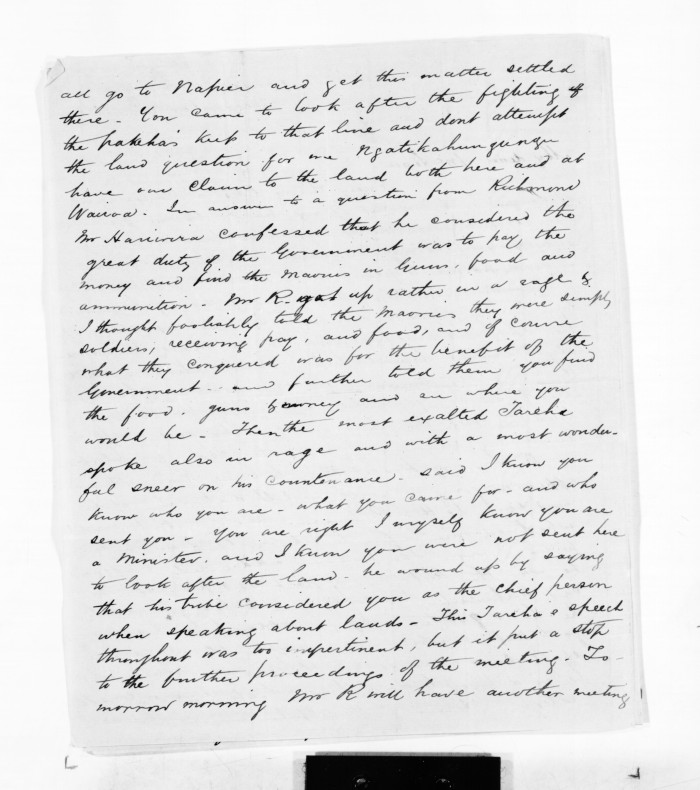 all go to Napier and get this matter settled
there - You came to look after the fighting of
the pakeha's keep to that line and dont attempt
the land question for we Ngatikahungungu
have our claim to the land both here and at
Wairoa. In answer to a question from Richmond
Mr Hariwira confessed that he considered the
great duty of the Government was to pay the
money and find the Maoris in Guns, food and
ammunition - Mr R. got up rather in a rage &
I thought foolishly told the Maories they were simply
soldiers, receiving pay, and food, and of course
what they conquered was for the benefit of the
Government - and further told them you find
the food, guns & money and see where you
would be - Then the most exalted Tareha
spoke also in rage and with a most wonder-
ful sneer on his countenance - said I know you
know who you are - what you came for - and who
sent you - You are right I myself know you are
a Minister, and I know you were not sent here
to look after the land - he wound up by saying
that his tribe considered you as the chief person
when speaking about lands - This Tareha's speech
throughout was too impertinent, but it put a stop
to the further proceedings of the meeting - To-
morrow morning Mr R will have another meeting